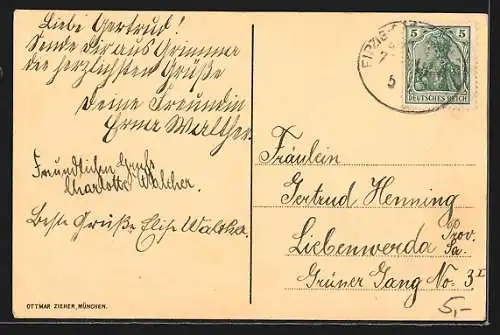 Liebe Gertrud!
Sende Dir aus Grimma
die herzlichsten Grüße
Deine Freundin
Erna Walther.
Freundlichen Gruß
Charlotte Walther.
Beste Grüße Elise
OTTMAR ZIEHER, MÜNCHEN.
5 5
DEUTSCHES REICH
Fräulein
Gertrud Henning
Liebenwerda Prov.
Sa.
Grüner Gang No. 3 I
5,-